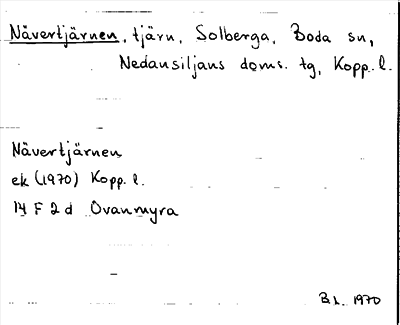 Nävertjärnen, tjärn, Solberga, Boda sn,
Nedansiljans doms. tg, Kopp. l.
Nävertjärnen
ek (1970) Kopp. l.
14 F 2 d Ovanmyra
B.L. 1970